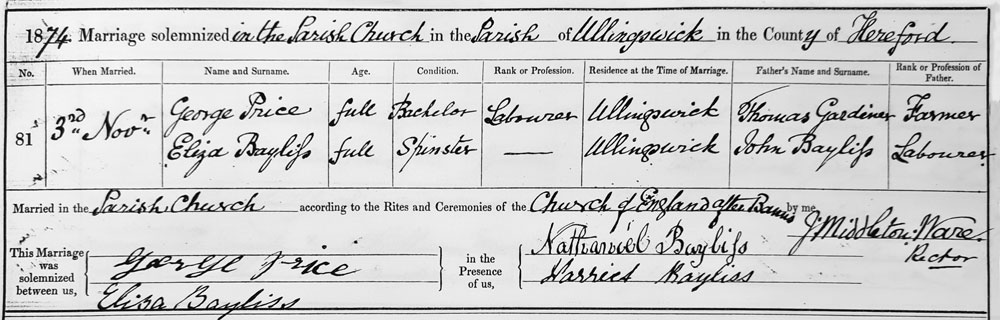 1874. Marriage solemnized in the Parish Church in the Parish of Ullingswick in the County of Hereford.
No. When Married. Name and Surname. Age. Condition. Rank or Profession. Residence at the Time of Marriage. Father's Name and Surname. Rank or Profession of Father.
81 3rd Novr George Price full Bachelor Labourer Ullingswick Thomas Gardiner Farmer
Eliza Bayliss full Spinster — Ullingswick John Bayliss Labourer
Married in the Parish Church according to the Rites and Ceremonies of the Church of England after Banns by me,
J. Middleton Ware.
Rector
This Marriage was solemnized between us,
George Price
Eliza Bayliss
in the Presence of us,
Nathaniel Bayliss
Harriet Bayliss